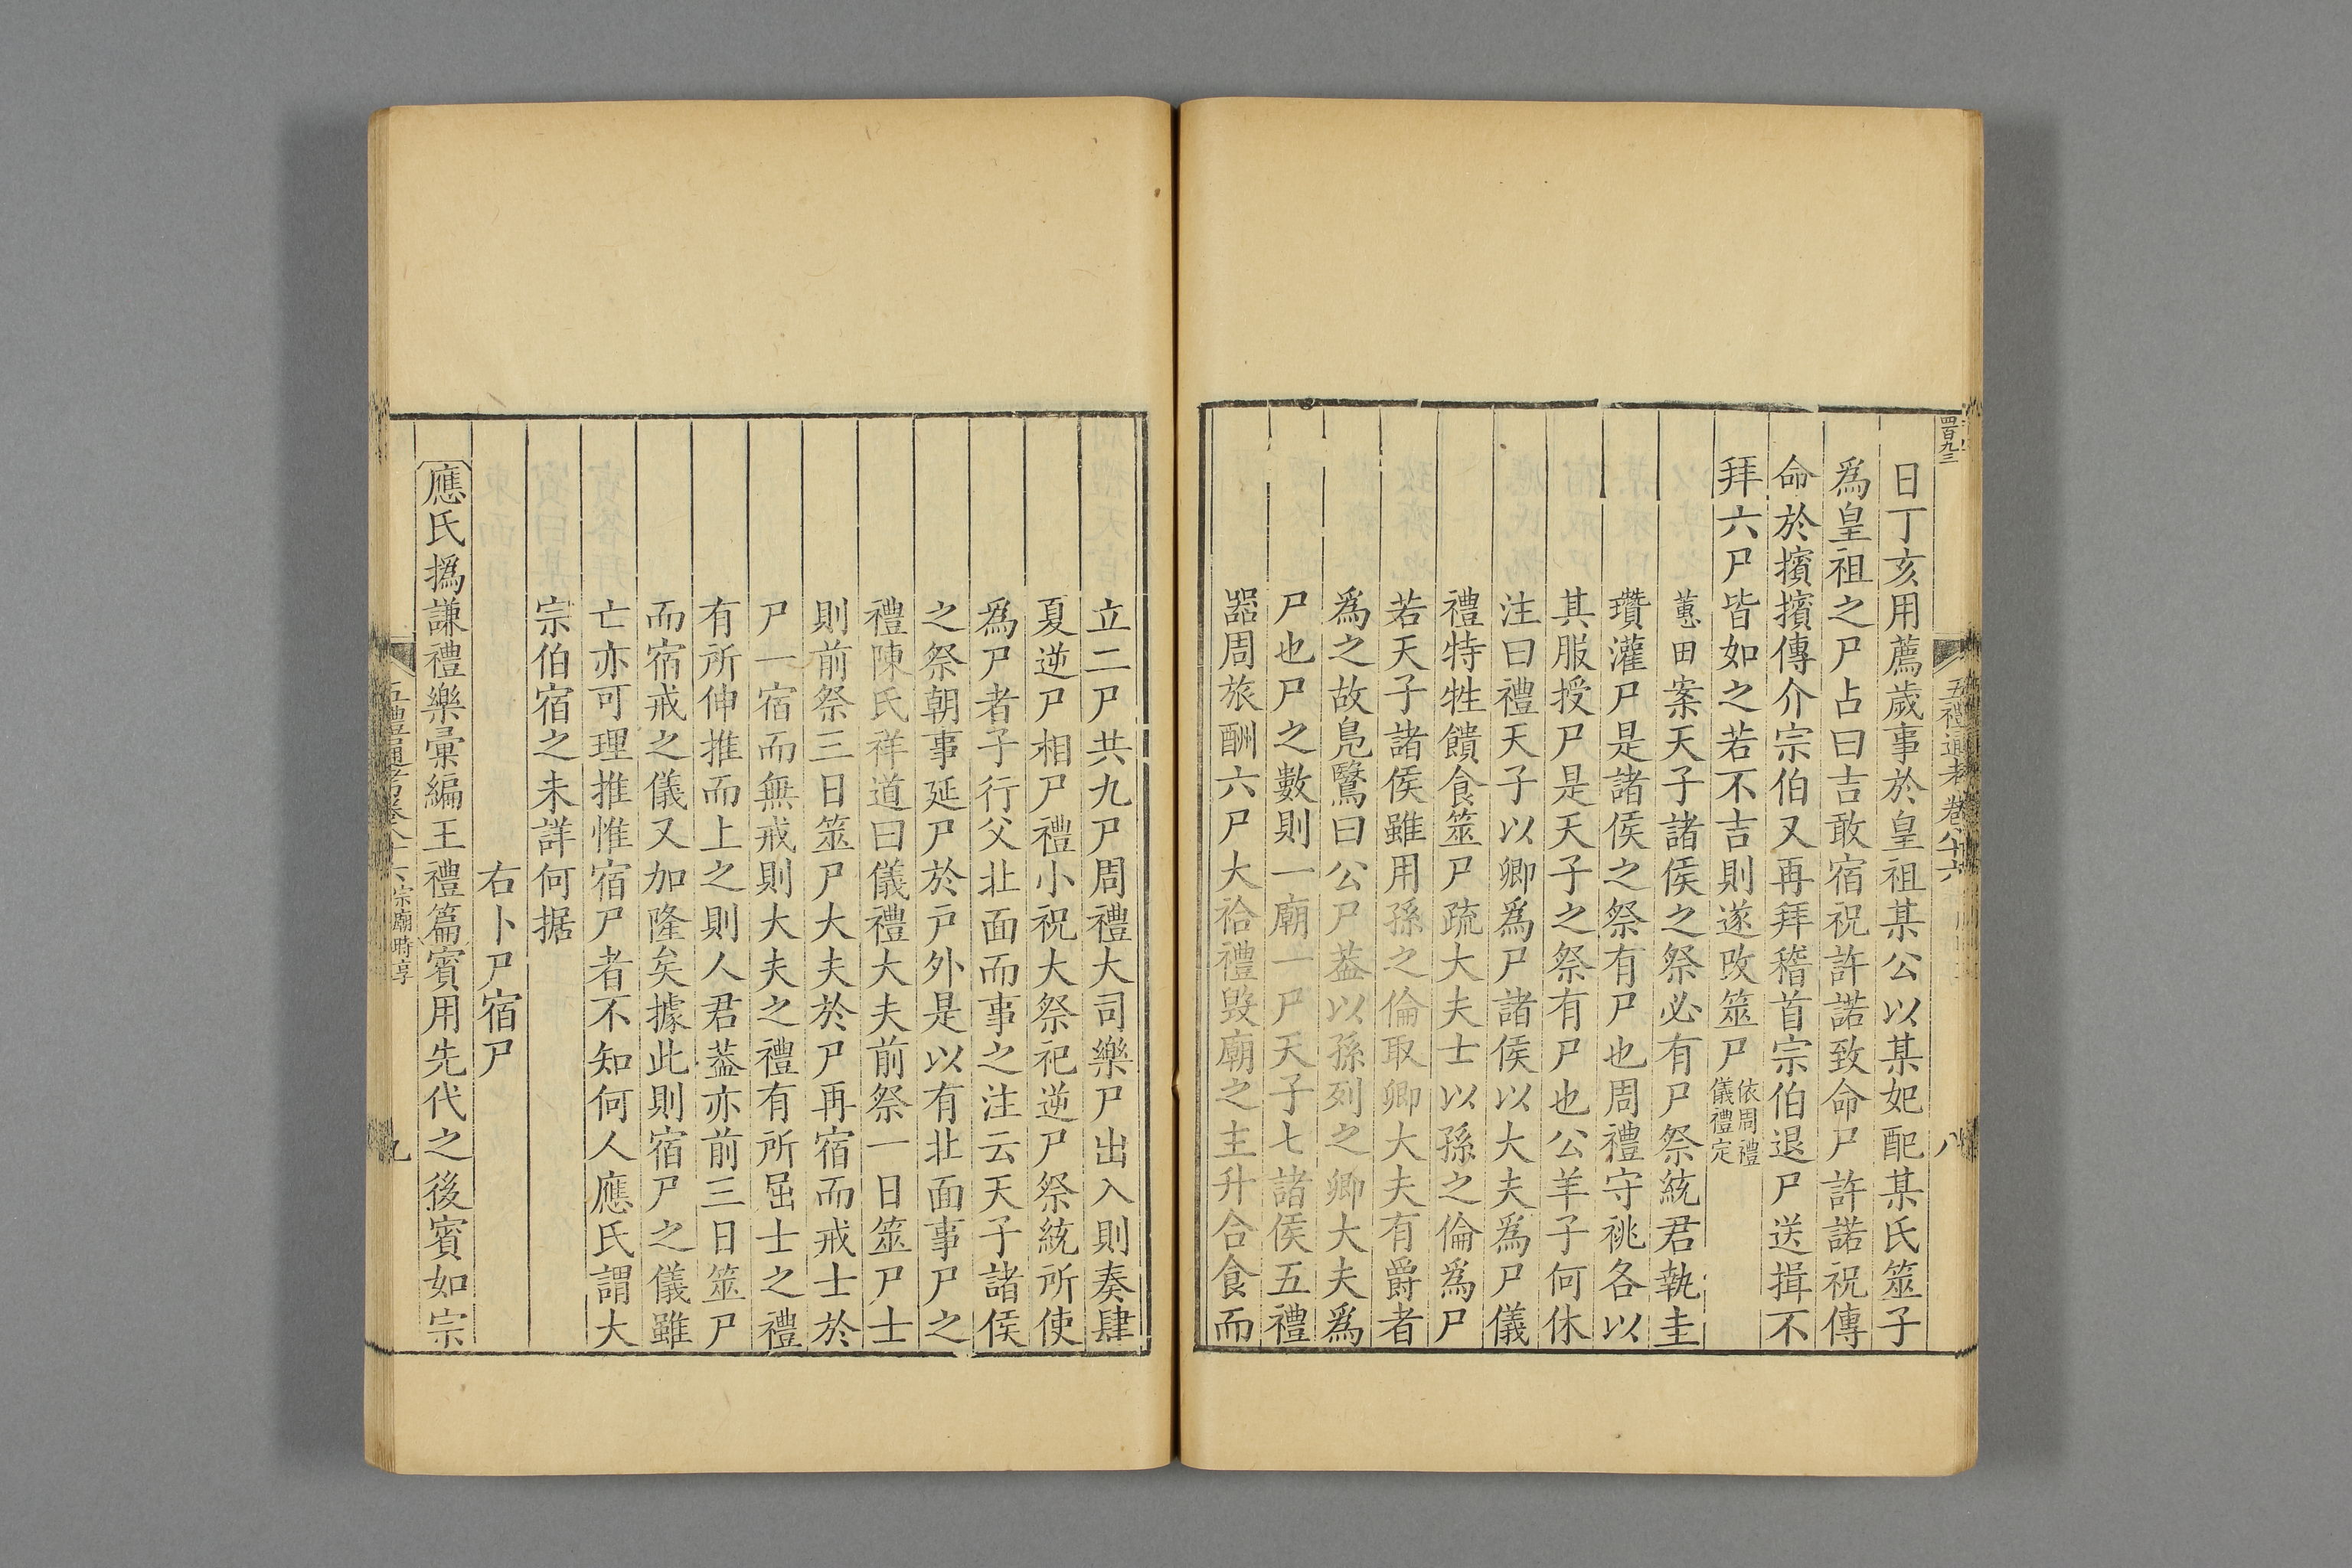 四百九三
五禮通考卷八十六
八
日丁亥用薦歲事於皇祖某公以某妃配某氏筮子
爲皇祖之尸占曰吉敢宿祝許諾致命尸許諾祝傳
命於擯擯傳介宗伯又再拜稽首宗伯退尸送揖不
拜六尸皆如之若不吉則遂改筮尸
依周禮
儀禮定
蕙田案天子諸侯之祭必有尸祭統君執圭
瓚灌尸是諸侯之祭有尸也周禮守祧各以
其服授尸是天子之祭有尸也公羊子何休
注曰禮天子以卿爲尸諸侯以大夫爲尸儀
禮特牲饋食筮尸疏大夫士以孫之倫爲尸
若天子諸侯雖用孫之倫取卿大夫有爵者
爲之故鳧鷖曰公尸葢以孫列之卿大夫爲
尸也尸之數則一廟一尸天子七諸侯五禮
器周旅酬六尸大祫禮毁廟之主升合食而
立二尸共九尸周禮大司樂尸出入則奏肆
夏逆尸相尸禮小祝大祭祀逆尸祭統所使
爲尸者子行父北面而事之注云天子諸侯
之祭朝事延尸於戸外是以有北面事尸之
禮陳氏祥道曰儀禮大夫前祭一日筮尸士
則前祭三日筮尸大夫於尸再宿而戒士於
尸一宿而無戒則大夫之禮有所屈士之禮
有所伸推而上之則人君葢亦前三日筮尸
而宿戒之儀又加隆矣據此則宿尸之儀雖
亡亦可理推惟宿尸者不知何人應氏謂大
宗伯宿之未詳何据
右卜尸宿尸
應氏撝謙禮樂彙編王禮篇賓用先代之後賓如宗
五禮通考卷八十六
宗廟時享
九